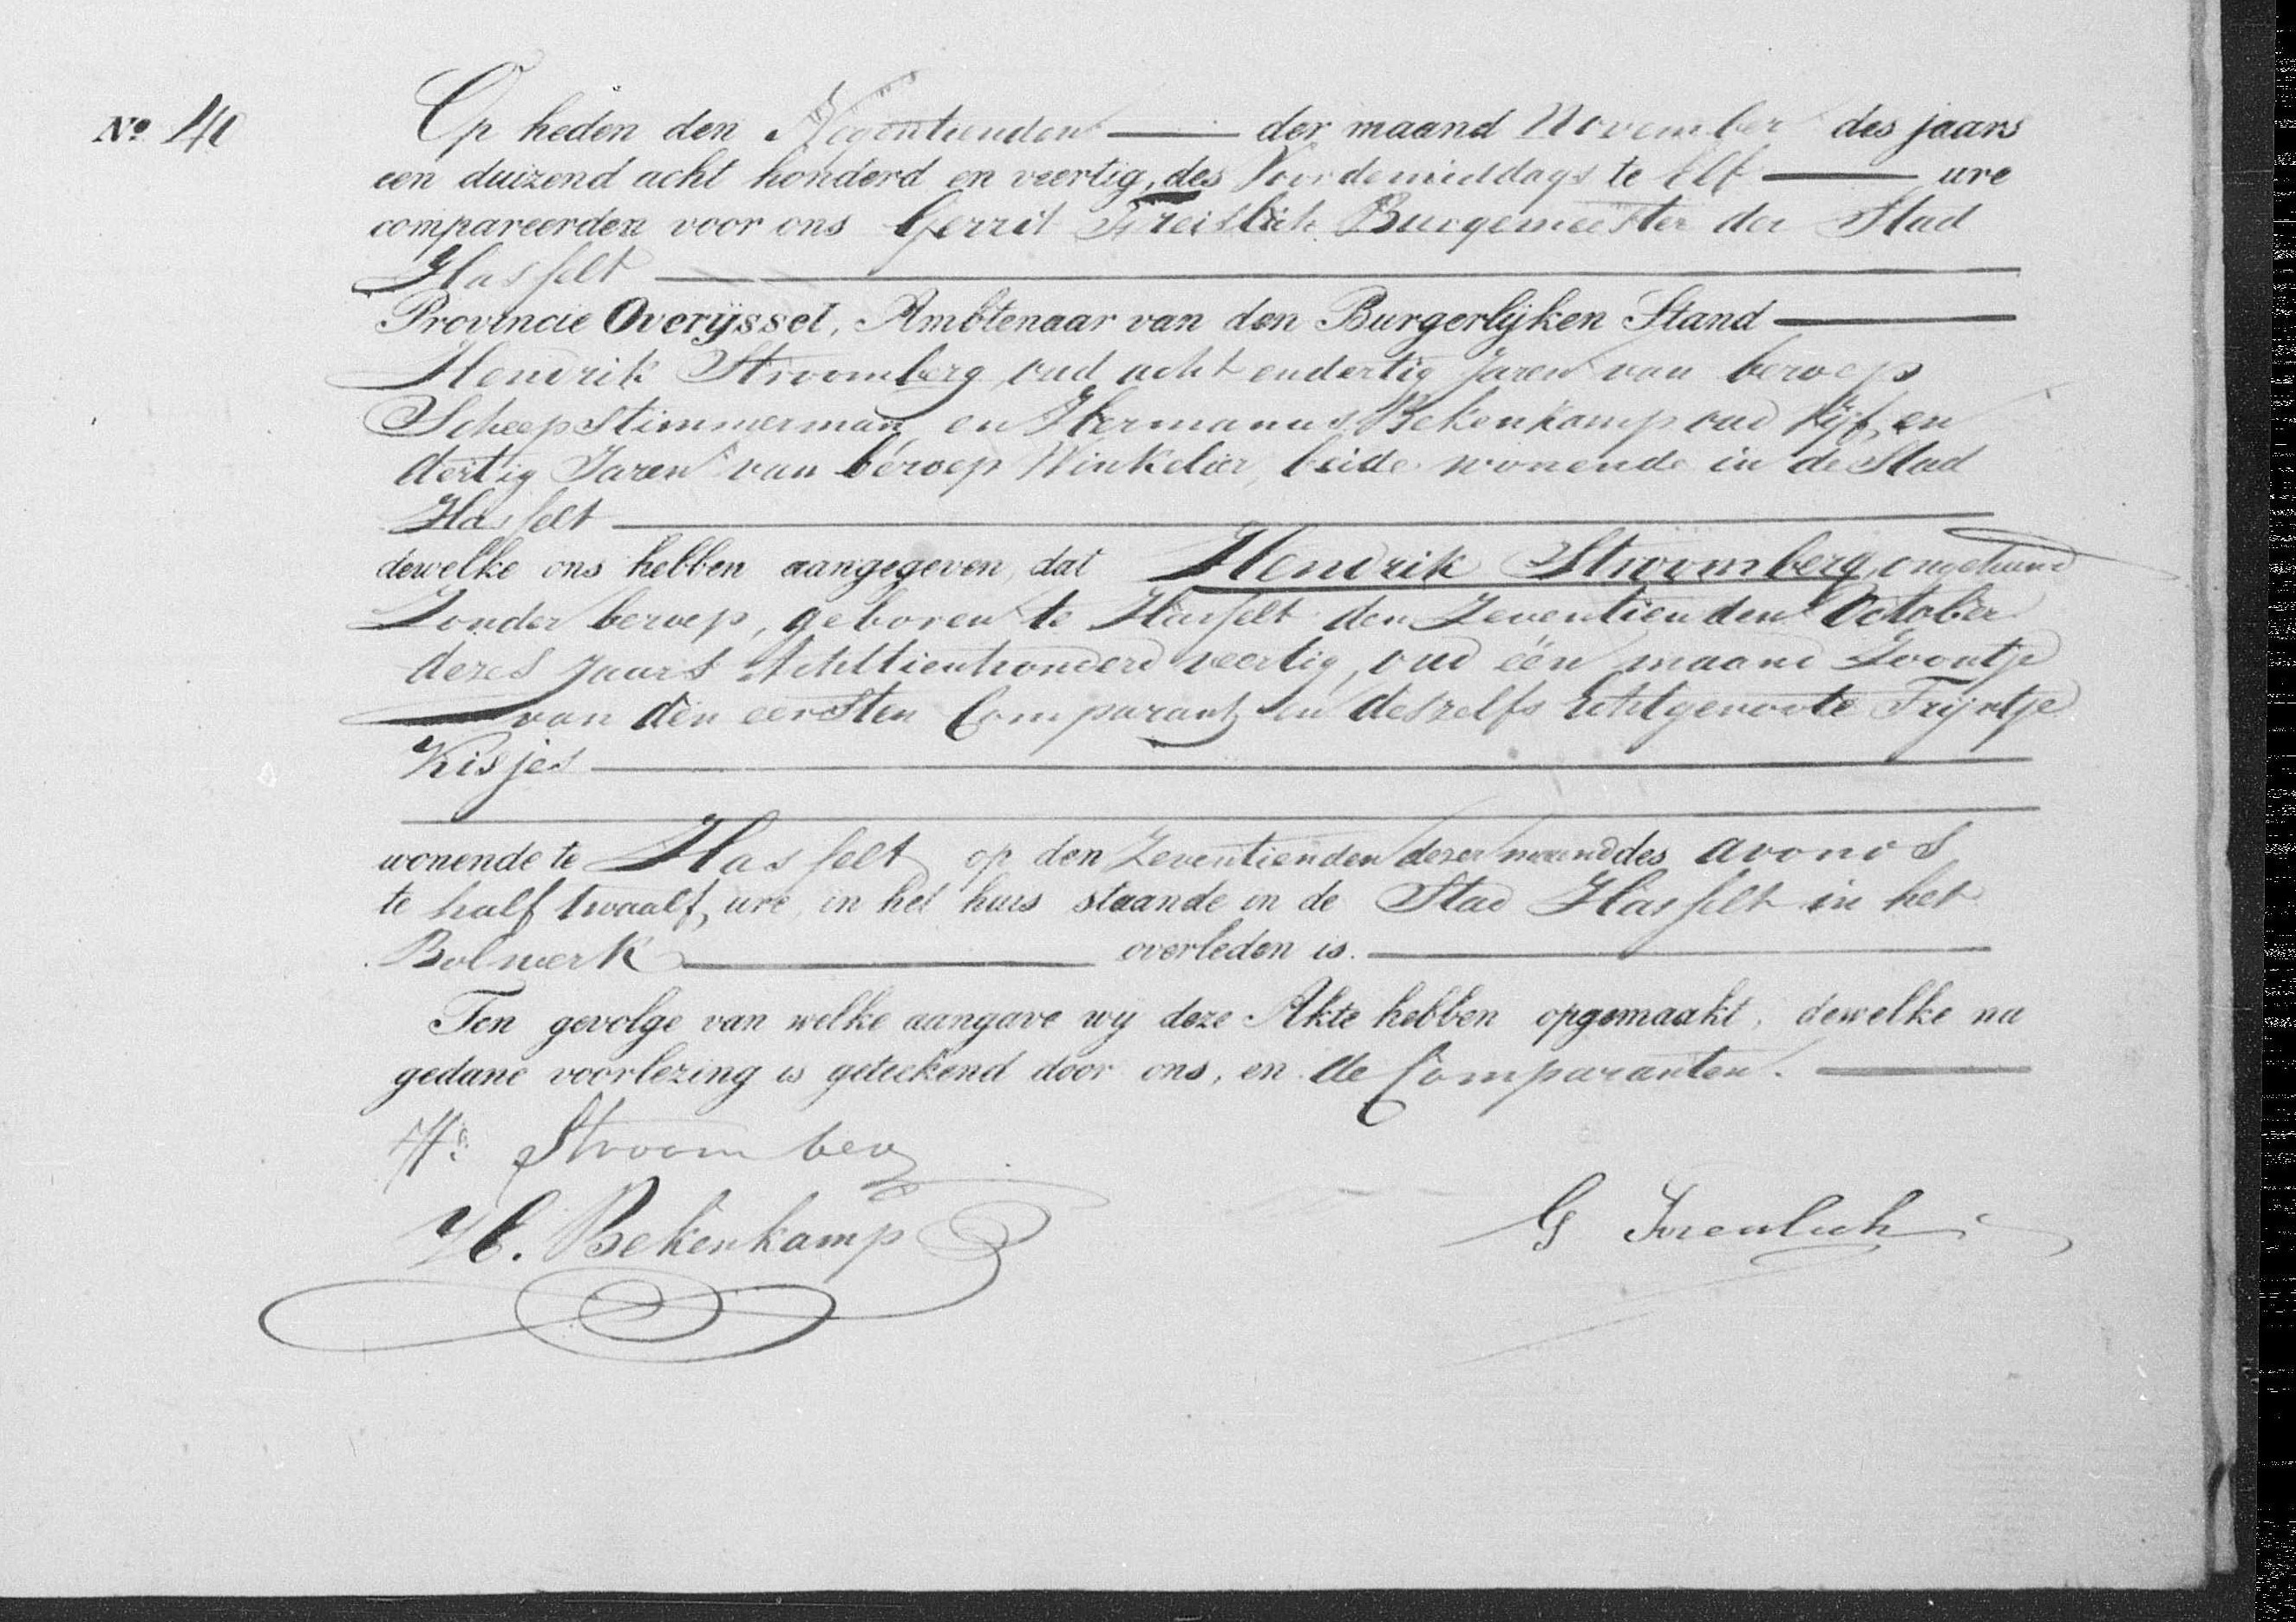 Nº 40
Op heden den Negentienden der maand November des jaars
een duizend acht honderd en veertig, des Voordemiddags te Elf ure
compareerden voor ons Gerrit Burgemeester der Stad
Hasselt
Provincie Overijssel, Ambtenaar van den Burgerlijken Stand
Hendrik Stroomberg oud acht en dertig Jaren van beroep
Scheepstimmerman en Hermanus Bekenkamp oud Vijf en
dertig Jaren van beroep Winkelier, beide wonende in de Stad
Hasselt
dewelke ons hebben aangegeven, dat Hendrik Stroomberg, ongehuwd
Zonder beroep, geboren te Hasselt den Zeventienden October
dezes Jaars Achttienhonderd veertig, oud één maand Zoontje
van den eersten Comparant en deszelfs Echtgenoote Trijntje
Kisjes
wonende te Hasselt op den Zeventienden dezer maand des avonds
te half twaalf, ure, in het huis staande in de Stad Hasselt in het
Bolwerk overleden is.
Ten gevolge van welke aangave wij deze Akte hebben opgemaakt, dewelke na
gedane voorlezing is geteekend door ons, en de Comparanten.
Hk Stroomberg
H. Bekenkamp
G